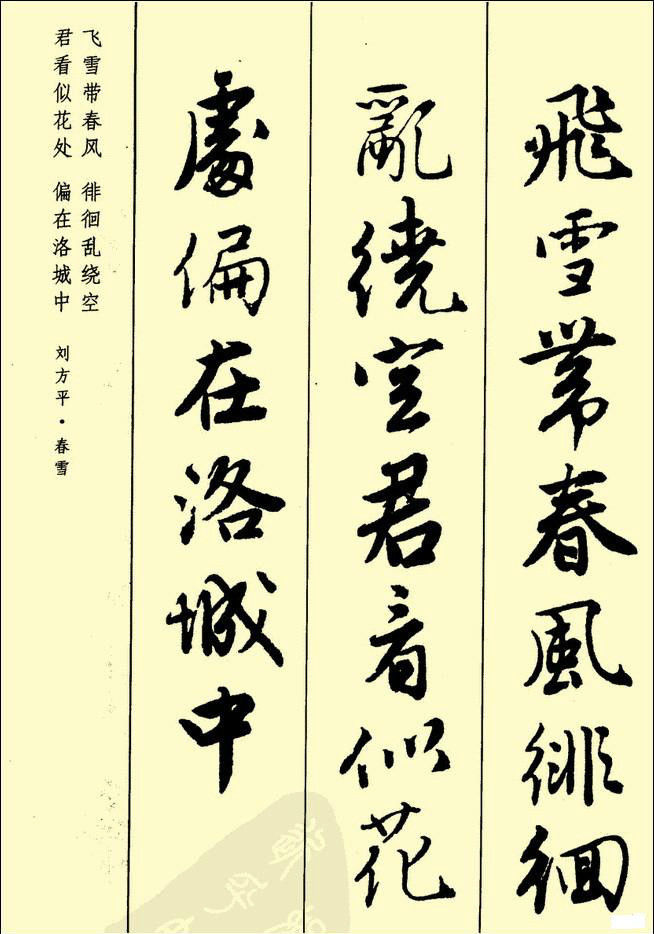 飛雪帶春風徘徊
亂繞空君看似花
處偏在洛城中
飞雪带春风 徘徊乱绕空
君看似花处 偏在洛城中
刘方平·春雪